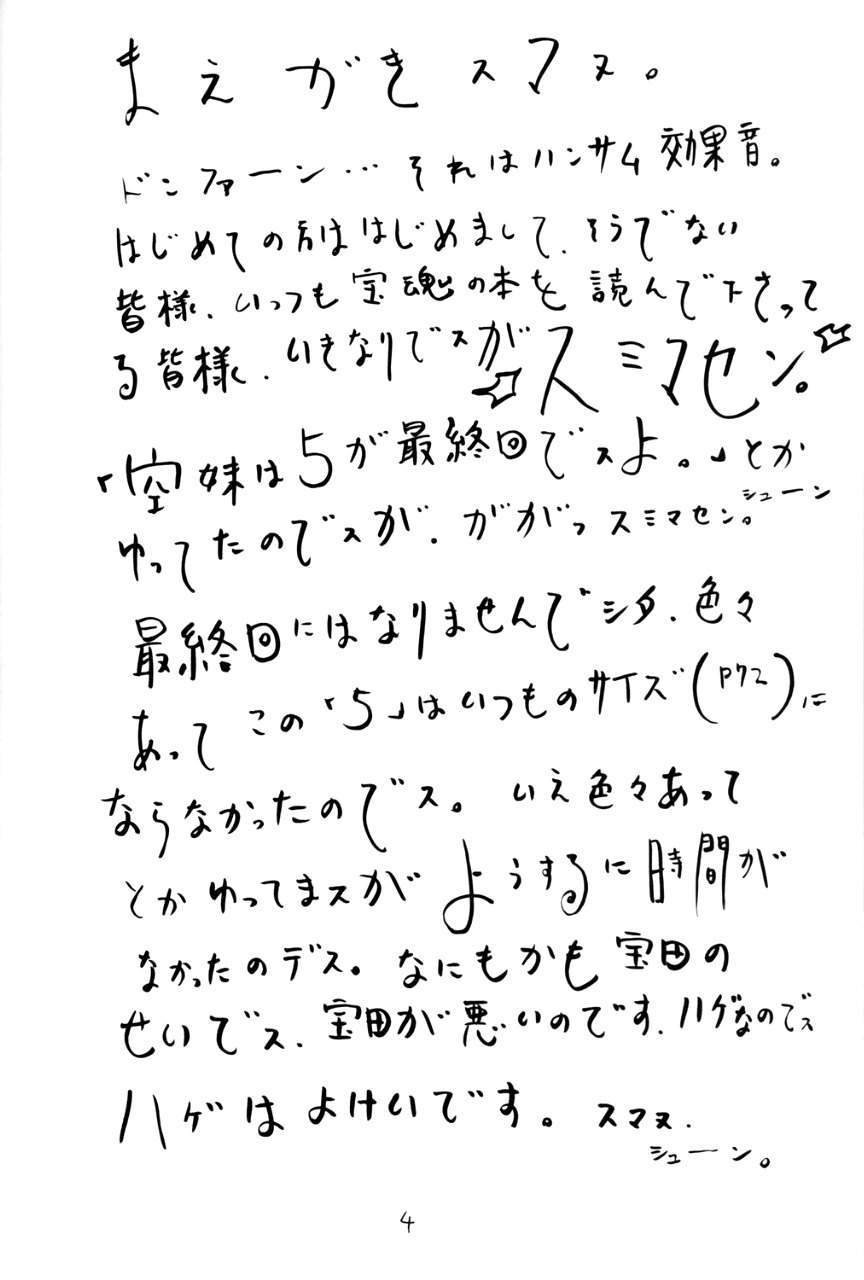 まえがきスマヌ。
ドンファーン…それはハンサム効果音。
はじめての方ははじめまして、そうでない
皆様、いつも宝魂の本を読んで下さって
る皆様、いきなりでスがスミマセン。
「空妹は5が最終回でスよ。」とか
ゆってたのでスが、ががっスミマセン。シューン
最終回にはなりませんでシタ、色々
あってこの「5」はいつものサイズ(P72)に
ならなかったのでス。いえ色々あって
とかゆってまスがようするに時間が
なかったのデス。なにもかも宝田の
せいでス、宝田が悪いのです、ハゲなのでス
ハゲはよけいです。スマヌ、
シューン。
4